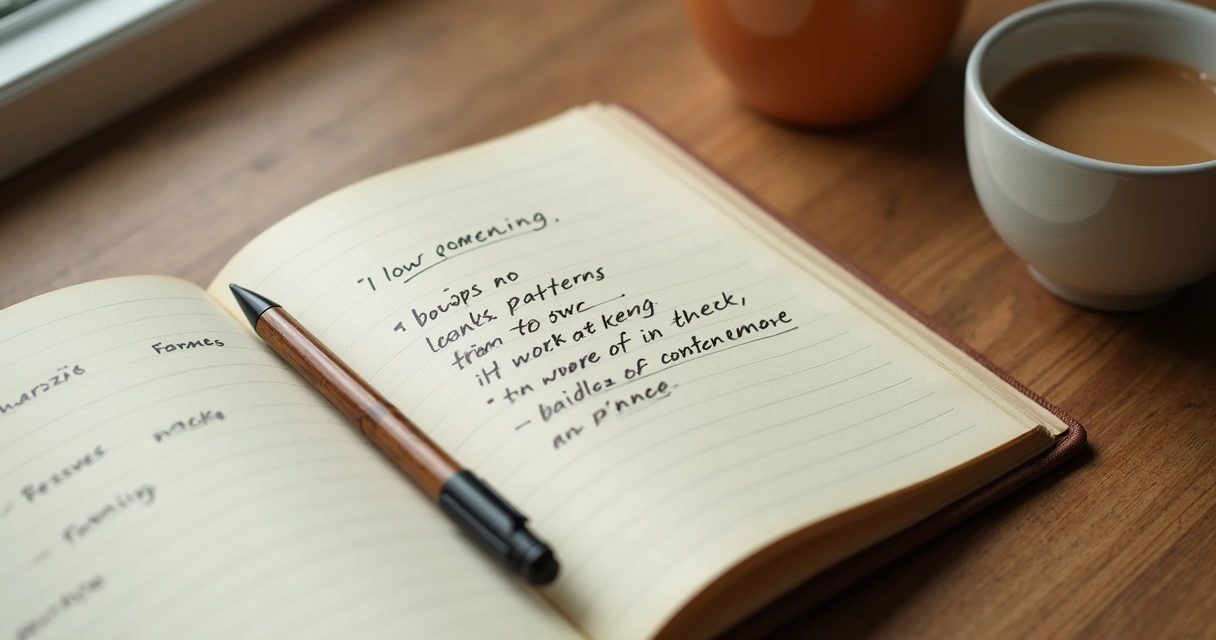 Formes
nacks
- Pessves
- Farming
"I low gomening.
bowops no
leenks patterns
from to owr
iH work at keng
• tm woore of in theck,
- baidles of contenemore
an pinnce.